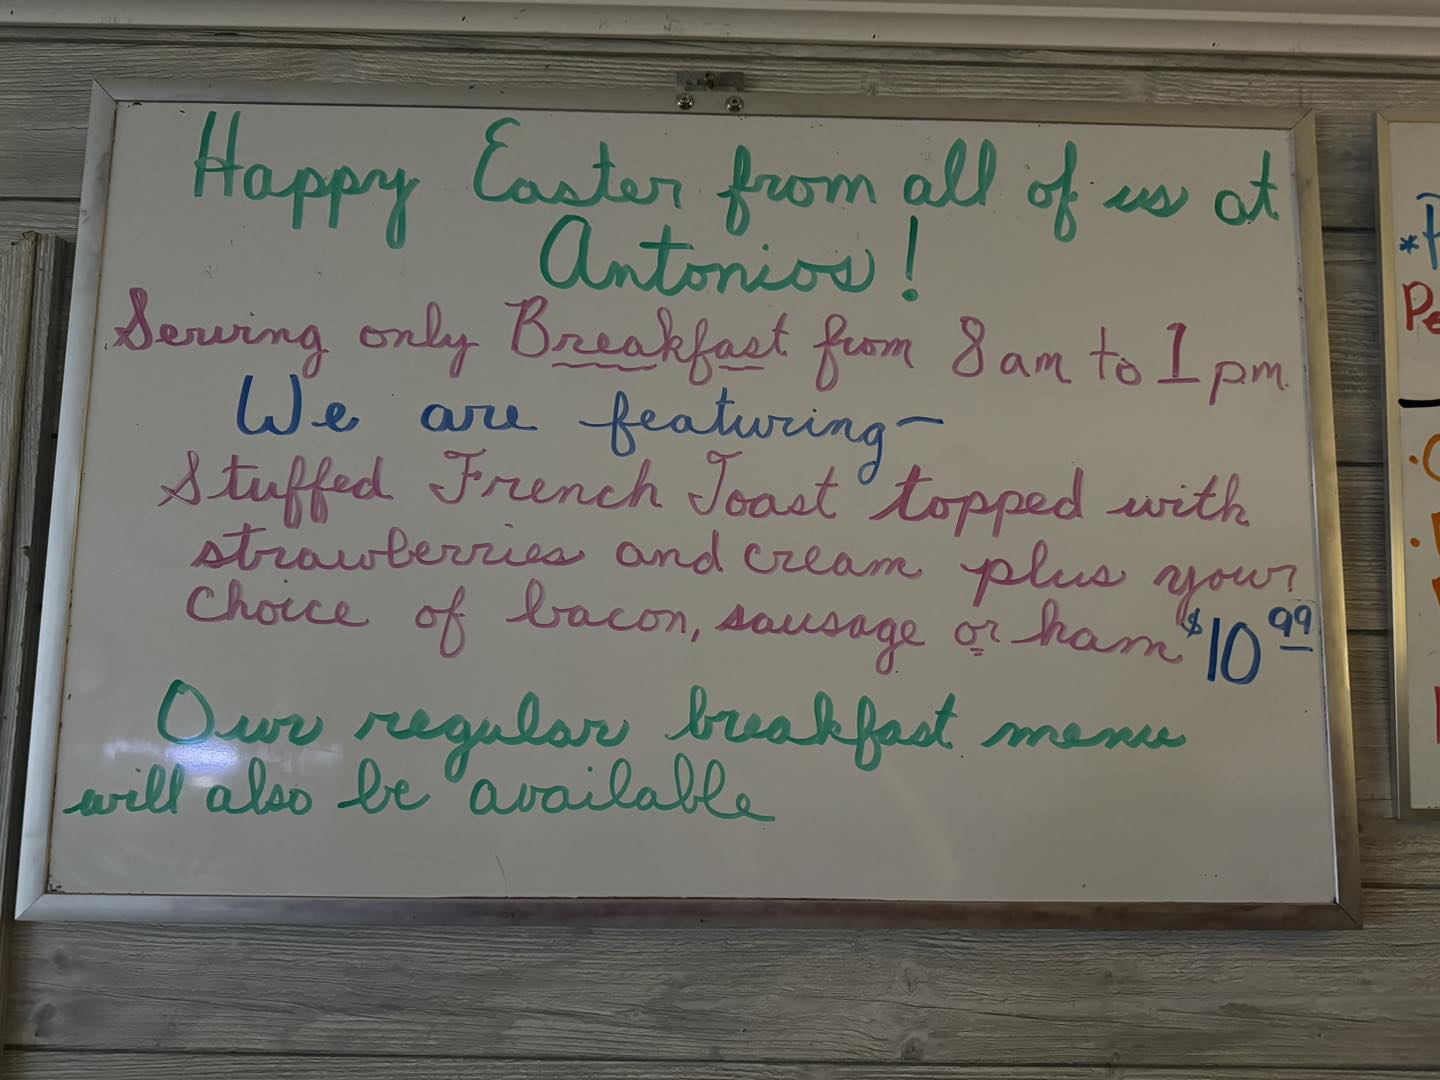 Happy Easter from all of us at
Antonios!
Serving only Breakfast from 8am to 1pm.
We are featuring-
Stuffed French Toast topped with
strawberries and cream plus your
choice of bacon, sausage or ham $10 99
Our regular breakfast menu
will also be available